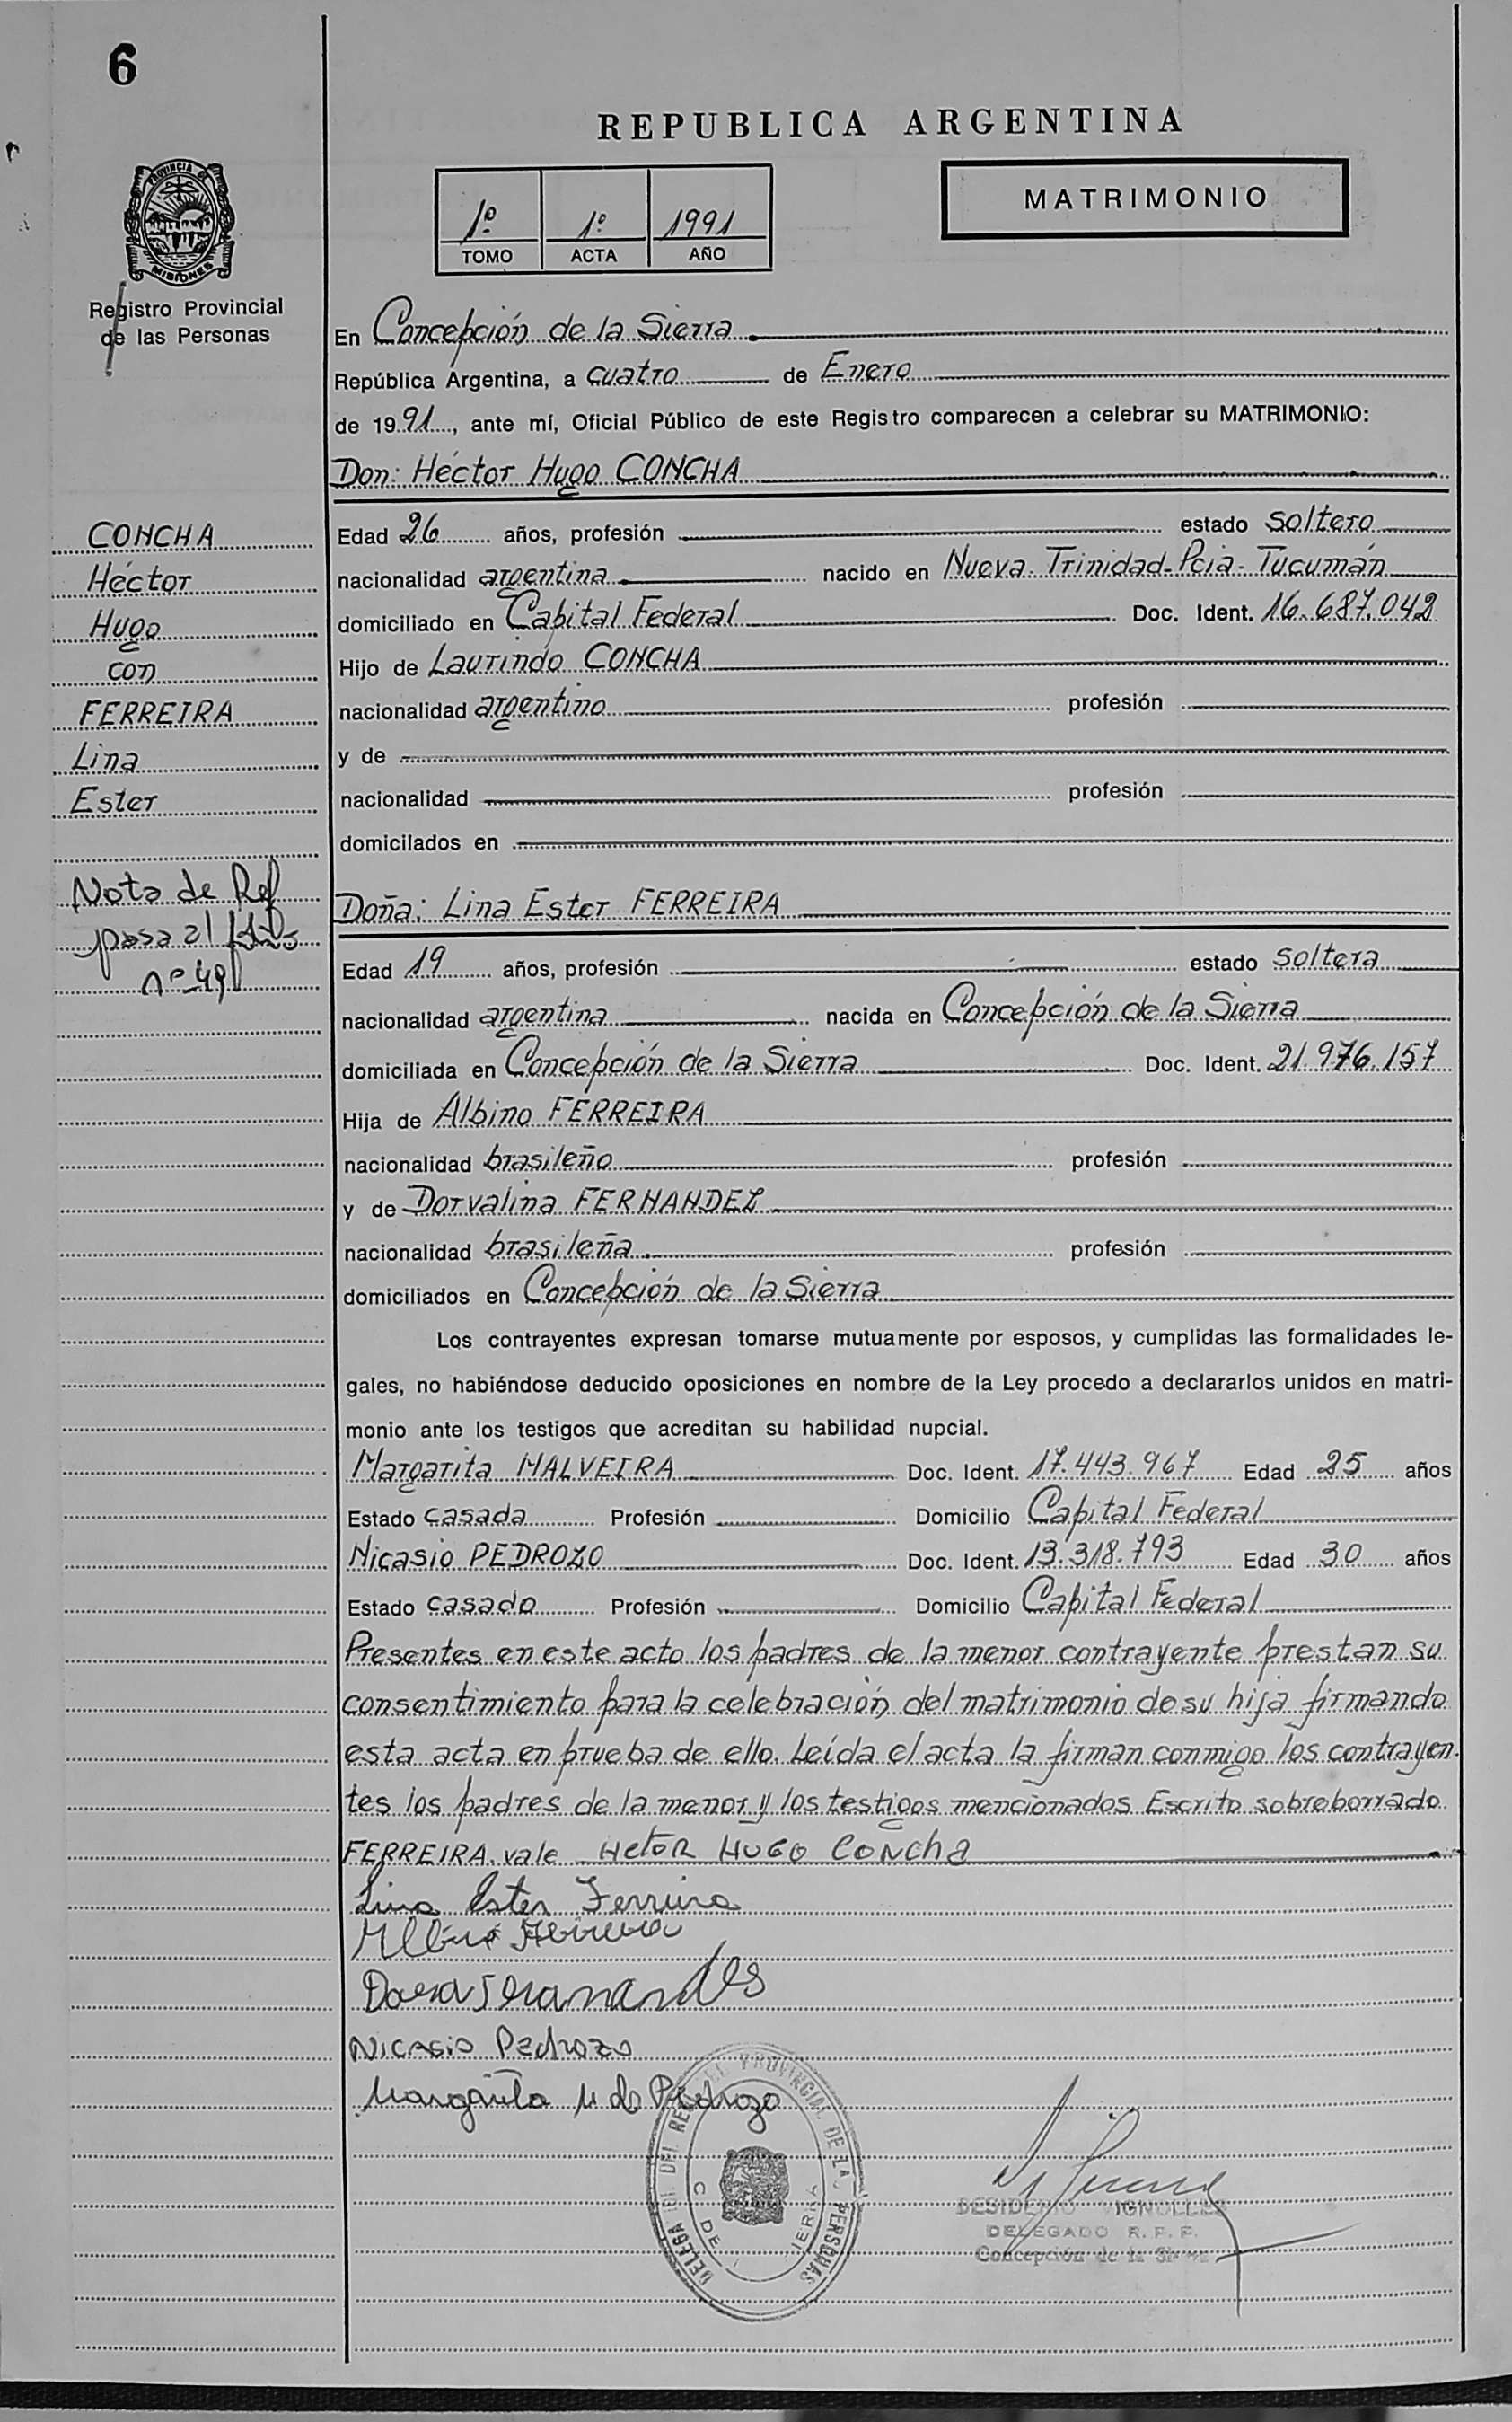 6
REPUBLICA ARGENTINA
PROVINCIA DE
MISIONES
Registro Provincial
de las Personas
1º 1º 1991
TOMO ACTA AÑO
MATRIMONIO
En Concepción de la Sierra
República Argentina, a cuatro de Enero
de 1991, ante mí, Oficial Público de este Registro comparecen a celebrar su MATRIMONIO:
Don: Héctor Hugo CONCHA
CONCHA
Héctor
Hugo
con
FERREIRA
Lina
Ester
Nota de Ref
pasa al folio
nº 49
Edad 26 años, profesión estado soltero
nacionalidad argentina nacido en Nueva Trinidad-Pcia-Tucumán
domiciliado en Capital Federal Doc. Ident. 16.687.042
Hijo de Laurindo CONCHA
nacionalidad argentino profesión
y de
nacionalidad profesión
domicilados en
Doña: Lina Ester FERREIRA
Edad 19 años, profesión estado soltera
nacionalidad argentina nacida en Concepción de la Sierra
domiciliada en Concepción de la Sierra Doc. Ident. 21.976.157
Hija de Albino FERREIRA
nacionalidad brasileño profesión
y de Dorvalina FERNANDEZ
nacionalidad brasileña profesión
domiciliados en Concepción de la Sierra
Los contrayentes expresan tomarse mutuamente por esposos, y cumplidas las formalidades le-
gales, no habiéndose deducido oposiciones en nombre de la Ley procedo a declararlos unidos en matri-
monio ante los testigos que acreditan su habilidad nupcial.
Margarita MALVEIRA Doc. Ident. 17.443.967 Edad 25 años
Estado casada Profesión Domicilio Capital Federal
Nicasio PEDROZO Doc. Ident. 13.318.793 Edad 30 años
Estado casado Profesión Domicilio Capital Federal
Presentes en este acto los padres de la menor contrayente prestan su
consentimiento para la celebración del matrimonio de su hija firmando
esta acta en prueba de ello. Leída el acta la firman conmigo los contrayen-
tes los padres de la menor y los testigos mencionados Escrito sobreborrado
FERREIRA vale Hctor HUGO Concha
Lina Ester Ferreira
Nicasio Pedrozo
Margarita M de Pedrozo
PROVINCIAL DE LAS PERSONAS
DESIDERIO VIGNOLLES
DELEGADO R. P. P.
Concepción de la Sierra